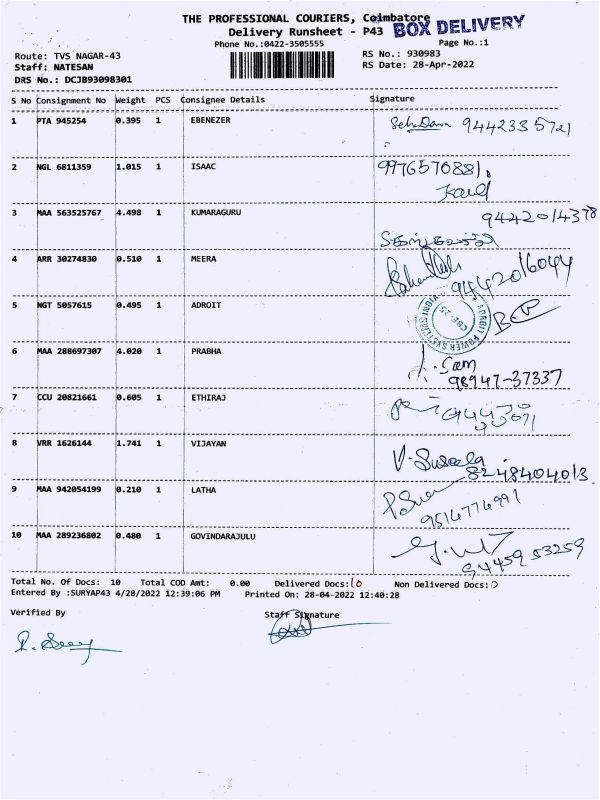 THE PROFESSIONAL COURIERS, Coimbatore
Delivery Runsheet - P43 BOX DELIVERY
Phone No.:0422-3505555 Page No.:1
Route: TVS NAGAR-43 RS No.: 930983
Staff: NATESAN RS Date: 28-Apr-2022
DRS No.: DCJB93098301
S No Consignment No Weight PCS Consignee Details Signature
1 PTA 945254 0.395 1 EBENEZER 9442335721
2 NGL 6811359 1.015 1 ISAAC 9976576881
3 MAA 563525767 4.498 1 KUMARAGURU 9442014378
4 ARR 30274830 0.510 1 MEERA 9442016044
5 NGT 5057615 0.495 1 ADROIT
6 MAA 288697307 4.020 1 PRABHA Sam
98947-37337
7 CCU 20821661 0.605 1 ETHIRAJ
8 VRR 1626144 1.741 1 VIJAYAN V. Suseela
8248404013
9 MAA 942054199 0.210 1 LATHA
9514774991
10 MAA 289236802 0.480 1 GOVINDARAJULU
9445953259
Total No. Of Docs: 10 Total COD Amt: 0.00 Delivered Docs:10 Non Delivered Docs:0
Entered By :SURYAP43 4/28/2022 12:39:06 PM Printed On: 28-04-2022 12:40:28
Verified By Staff Signature